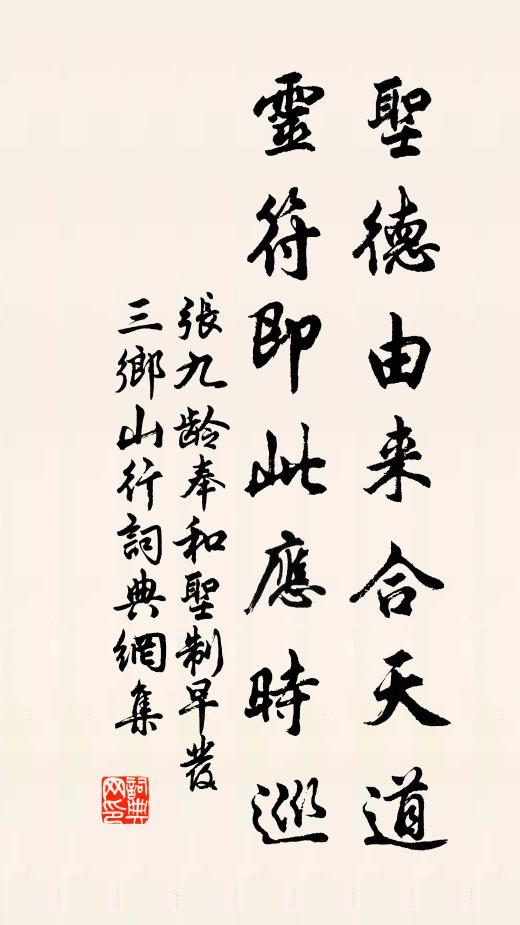 聖德由来合天道
靈符即此應時巡
張九齡奉和聖制早發
三鄉山行詞典網集
詞典网印